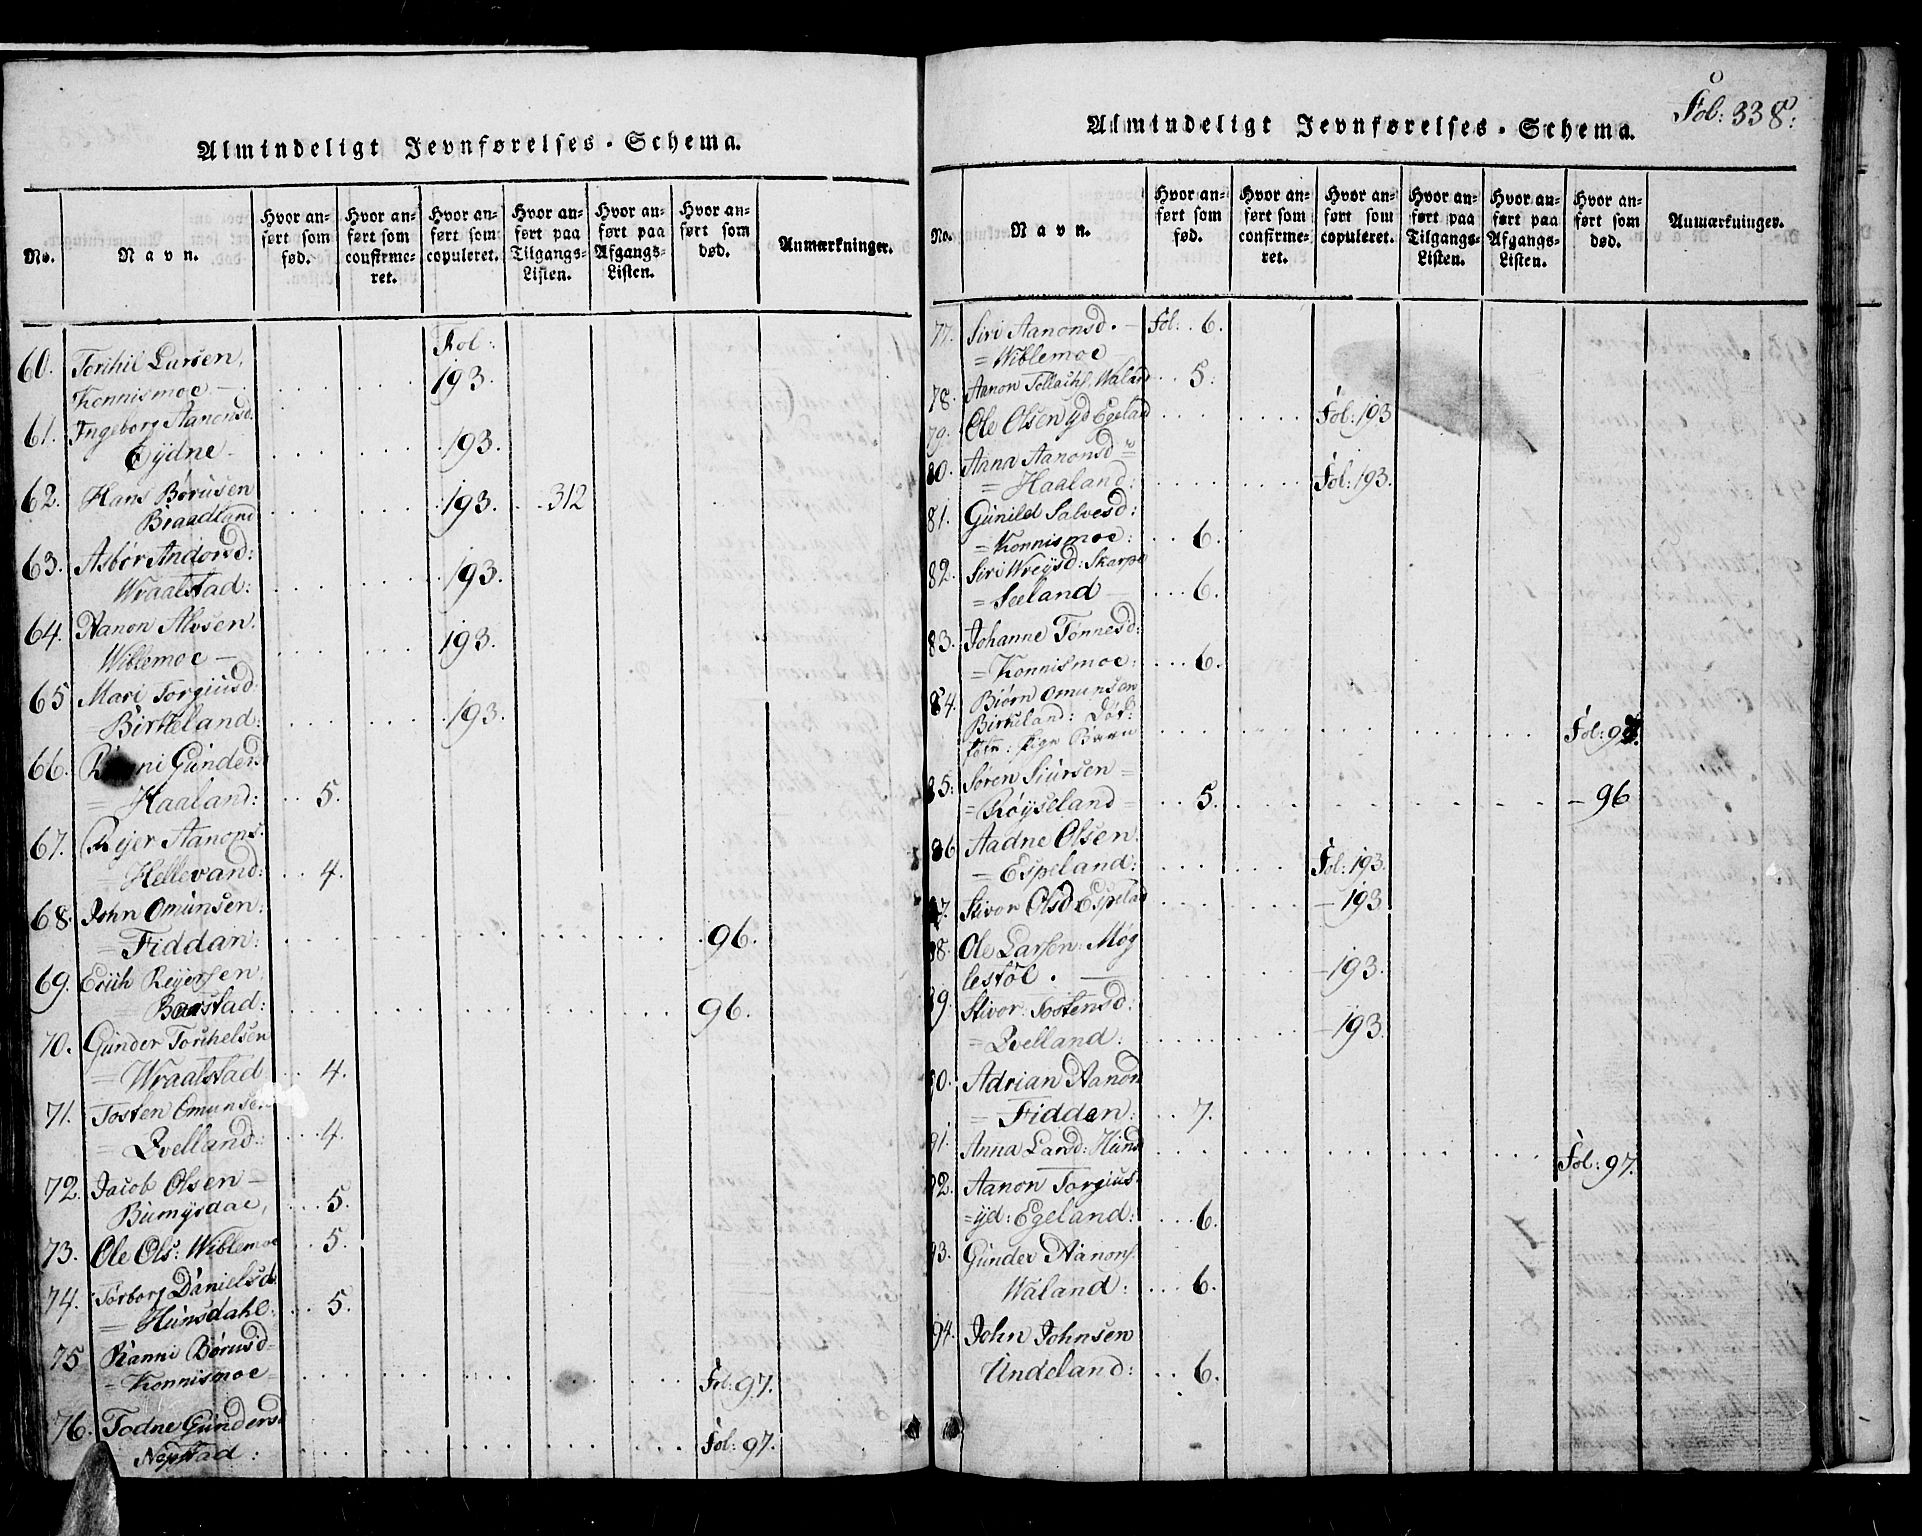 Almindeligt Jevnførelses-Schema.
No.
Navn.
Hvor anført som fød.
Hvor anført som confirmeret.
Hvor anført som copuleret.
Hvor anført paa Tilgangs-Listen.
Hvor anført paa Afgangs-Listen.
Hvor anført som død.
Anmærkninger.
60. Torkil Larsen, Fol:
Konnismoe 193.
61. Ingeborg Aanonsd.
Eydne 193.
62. Hans Børusen
Braadland 193. 312
63. Asbør Andorsd:
Wraalstad: 193.
64. Aanon Alvsen.
Wiblemoe 193.
65 Mari Torgiusd.
Birkeland: 193.
66. Gunders
= Haaland: 5.
67. Rejer Aanons.
= Hellevand: 4.
68. John Omunsen:
= Fiddan: 96.
69. Erich Reyersen.
= Baastad: 96.
70. Gunder Torkelsen
= Wraalstad 4.
71. Tosten Omunsen
= Qvelland: 4.
72. Jacob Olsen
Bumysdae, 5.
73. Ole Ols: Wiblemoe 5.
74. Torborg Danielsd.
= Hunsdahl: 5.
75 Ranni Børusd=
= Konnismoe Fol: 97.
76. Todne Gunders
Nystad: Fol: 97.
Fol: 338:
Almindeligt Jevnførelses-Schema.
No.
Navn.
Hvor anført som fød.
Hvor anført som confirmeret.
Hvor anført som copuleret.
Hvor anført paa Tilgangs-Listen.
Hvor anført paa Afgangs-Listen.
Hvor anført som død.
Anmærkninger.
77. Siri Aanonsd. Fol: 6.
= Wiblemoe
78. Aanon Tollachs. Waland 5.
79. Ole Olsen yd Egeland Fol: 193
80. Anna Aanonsd=
= Haaland: Fol: 193.
81. Gunild Salvesd:
= Konnismoe: 6.
82. Siri Wreysd: Skarpe
= Seeland 6.
83. Johanne Tønnesd:
= Konnismoe: 6.
84. Biørn Omunsen
Birkeland: Fol: 97.
85. Søren Siursen=
= Røyseland= 5. 96
86 Aadne Olsen.
= Espeland: Fol: 193.
87. Stivor Olsd Espelad 193
88. Ole Larsen: Møg
lestøl. 193.
89. Stivor Tostensd:
= Qvelland: 193.
90. Adrian Aanon
= Fidden: 7.
91. Anna Larsd: Huns Fol: 97.
92. Aanon Torgius.
=yd: Egeland: 6.
93. Gunder Aanons.
Waland: 6.
94. John Johnsen
Undeland: 6.